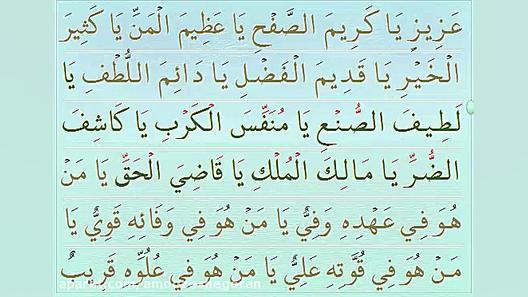 عَزِيزِ يَا كَرِيمَ الصَّفْحِ يَا عَظِيمَ الْمَنِّ يَا كَثِيرَ
الْخَيْرِ يَا قَدِيمَ الْفَضْلِ يَا دَائِمَ اللُّطْفِ يَا
لَطِيفَ الصُّنْعِ يَا مُنَفِّسَ الْكَرْبِ يَا كَاشِفَ
الضُّرِّ يَا مَالِكَ الْمُلْكِ يَا قَاضِيَ الْحَقِّ يَا مَنْ
هُوَ فِي عَهْدِهِ وَفِيٌّ يَا مَنْ هُوَ فِي وَفَائِهِ قَوِيٌّ يَا
مَنْ هُوَ فِي قُوَّتِهِ عَلِيٌّ يَا مَنْ هُوَ فِي عُلُوِّهِ قَرِيبٌ